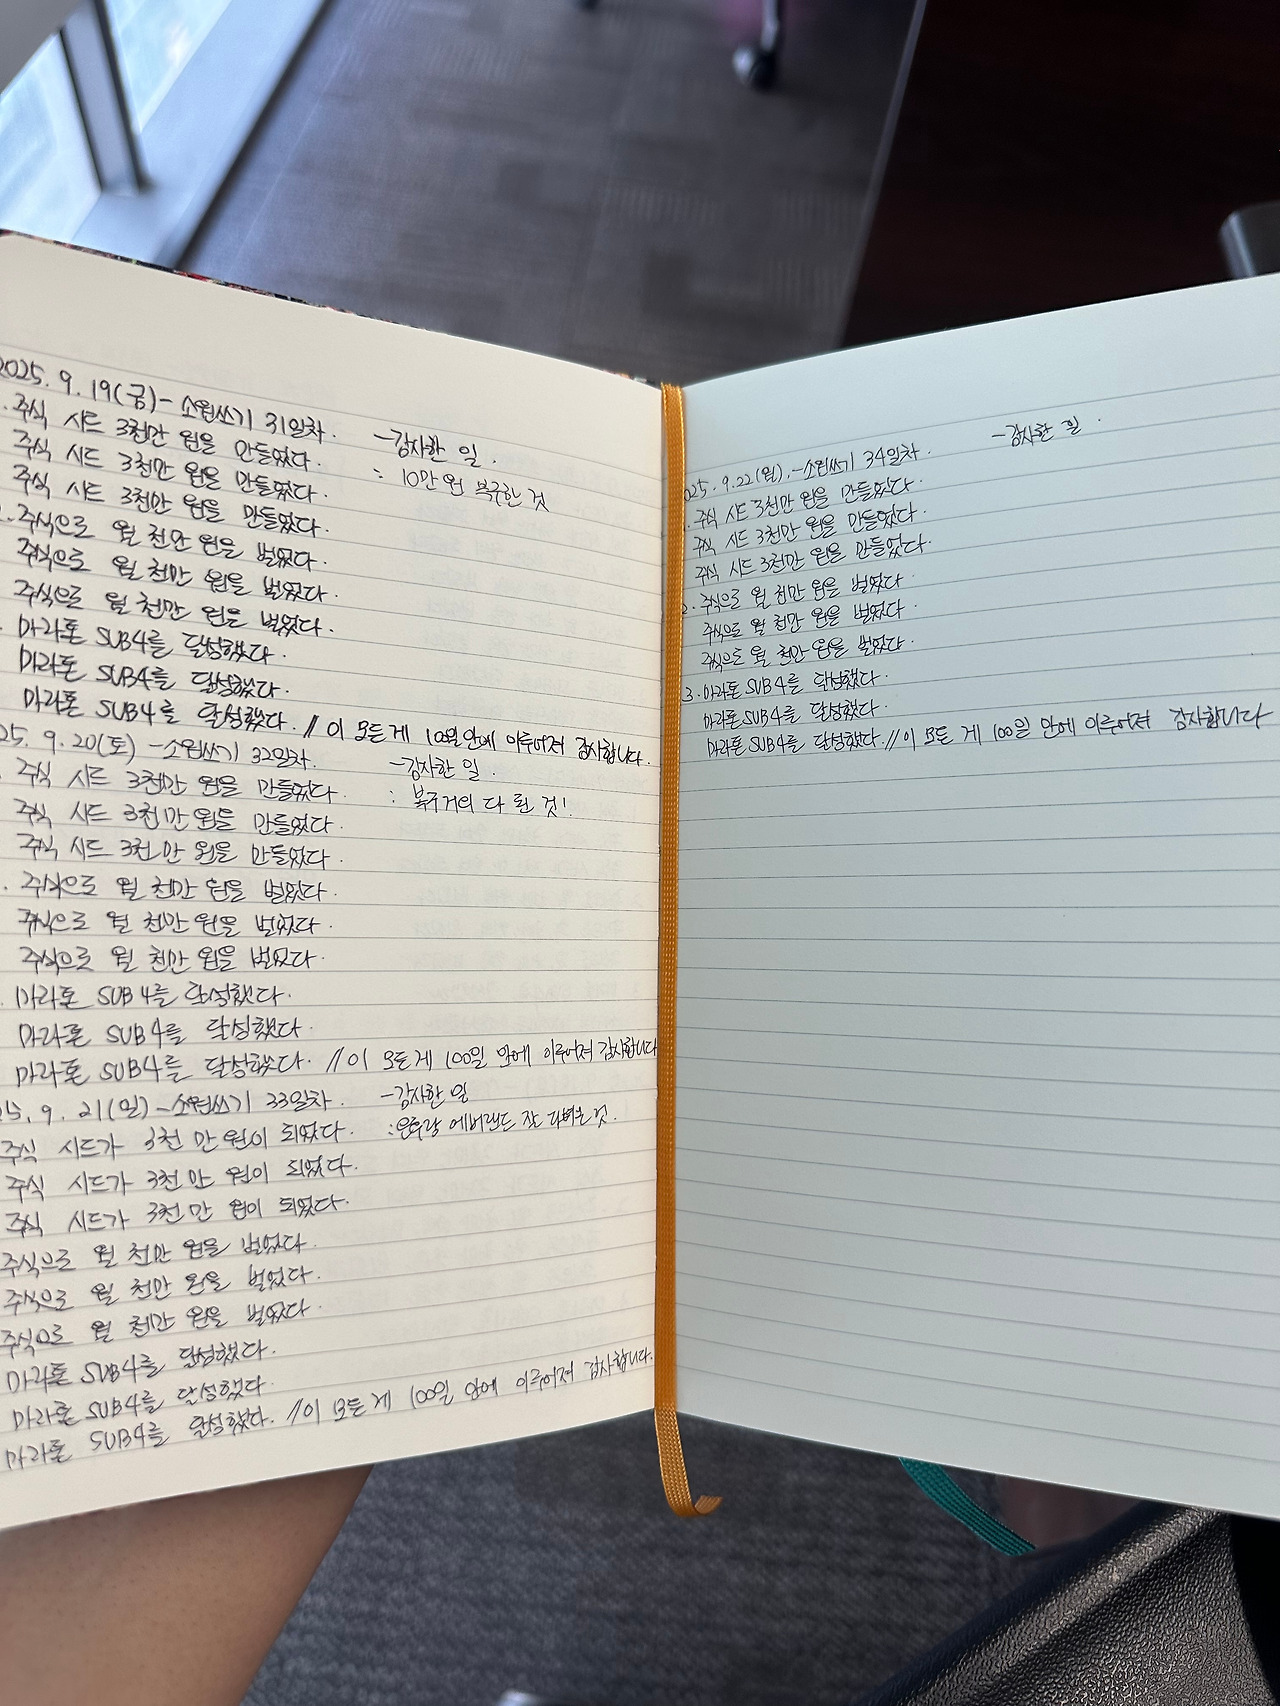 2025. 9. 19(금) - 소원쓰기 31일차.
. 주식 시드 3천만 원을 만들었다.
주식 시드 3천만 원을 만들었다.
주식 시드 3천만 원을 만들었다.
. 주식으로 월 천만 원을 벌었다.
주식으로 월 천만 원을 벌었다.
주식으로 월 천만 원을 벌었다.
. 마라톤 SUB4를 달성했다.
마라톤 SUB4를 달성했다.
마라톤 SUB4를 달성했다. // 이 모든 게 100일 안에 이루어져 감사합니다.
- 감사한 일.
: 10만 원 복구한 것
25. 9. 20(토) - 소원쓰기 32일차.
. 주식 시드 3천만 원을 만들었다.
주식 시드 3천만 원을 만들었다.
주식 시드 3천만 원을 만들었다.
. 주식으로 월 천만 원을 벌었다.
주식으로 월 천만 원을 벌었다.
주식으로 월 천만 원을 벌었다.
. 마라톤 SUB4를 달성했다.
마라톤 SUB4를 달성했다.
마라톤 SUB4를 달성했다. // 이 모든 게 100일 안에 이루어져 감사합니다
- 감사한 일.
: 복구 거의 다 된 것!
25. 9. 21(일) - 소원쓰기 33일차.
주식 시드가 3천 만 원이 되었다.
주식 시드가 3천 만 원이 되었다.
주식 시드가 3천 만 원이 되었다.
주식으로 월 천만 원을 벌었다.
주식으로 월 천만 원을 벌었다.
주식으로 월 천만 원을 벌었다.
마라톤 SUB4를 달성했다.
마라톤 SUB4를 달성했다.
마라톤 SUB4를 달성했다. // 이 모든 게 100일 안에 이루어져 감사합니다.
- 감사한 일
: 에버랜드 잘 다녀온 것.
025. 9. 22(월). - 소원쓰기 34일차.
. 주식 시드 3천만 원을 만들었다.
주식 시드 3천만 원을 만들었다.
주식 시드 3천만 원을 만들었다.
2. 주식으로 월 천만 원을 벌었다.
주식으로 월 천만 원을 벌었다.
주식으로 월 천만 원을 벌었다.
3. 마라톤 SUB4를 달성했다.
마라톤 SUB4를 달성했다.
마라톤 SUB4를 달성했다. // 이 모든 게 100일 안에 이루어져 감사합니다
- 감사한 일.